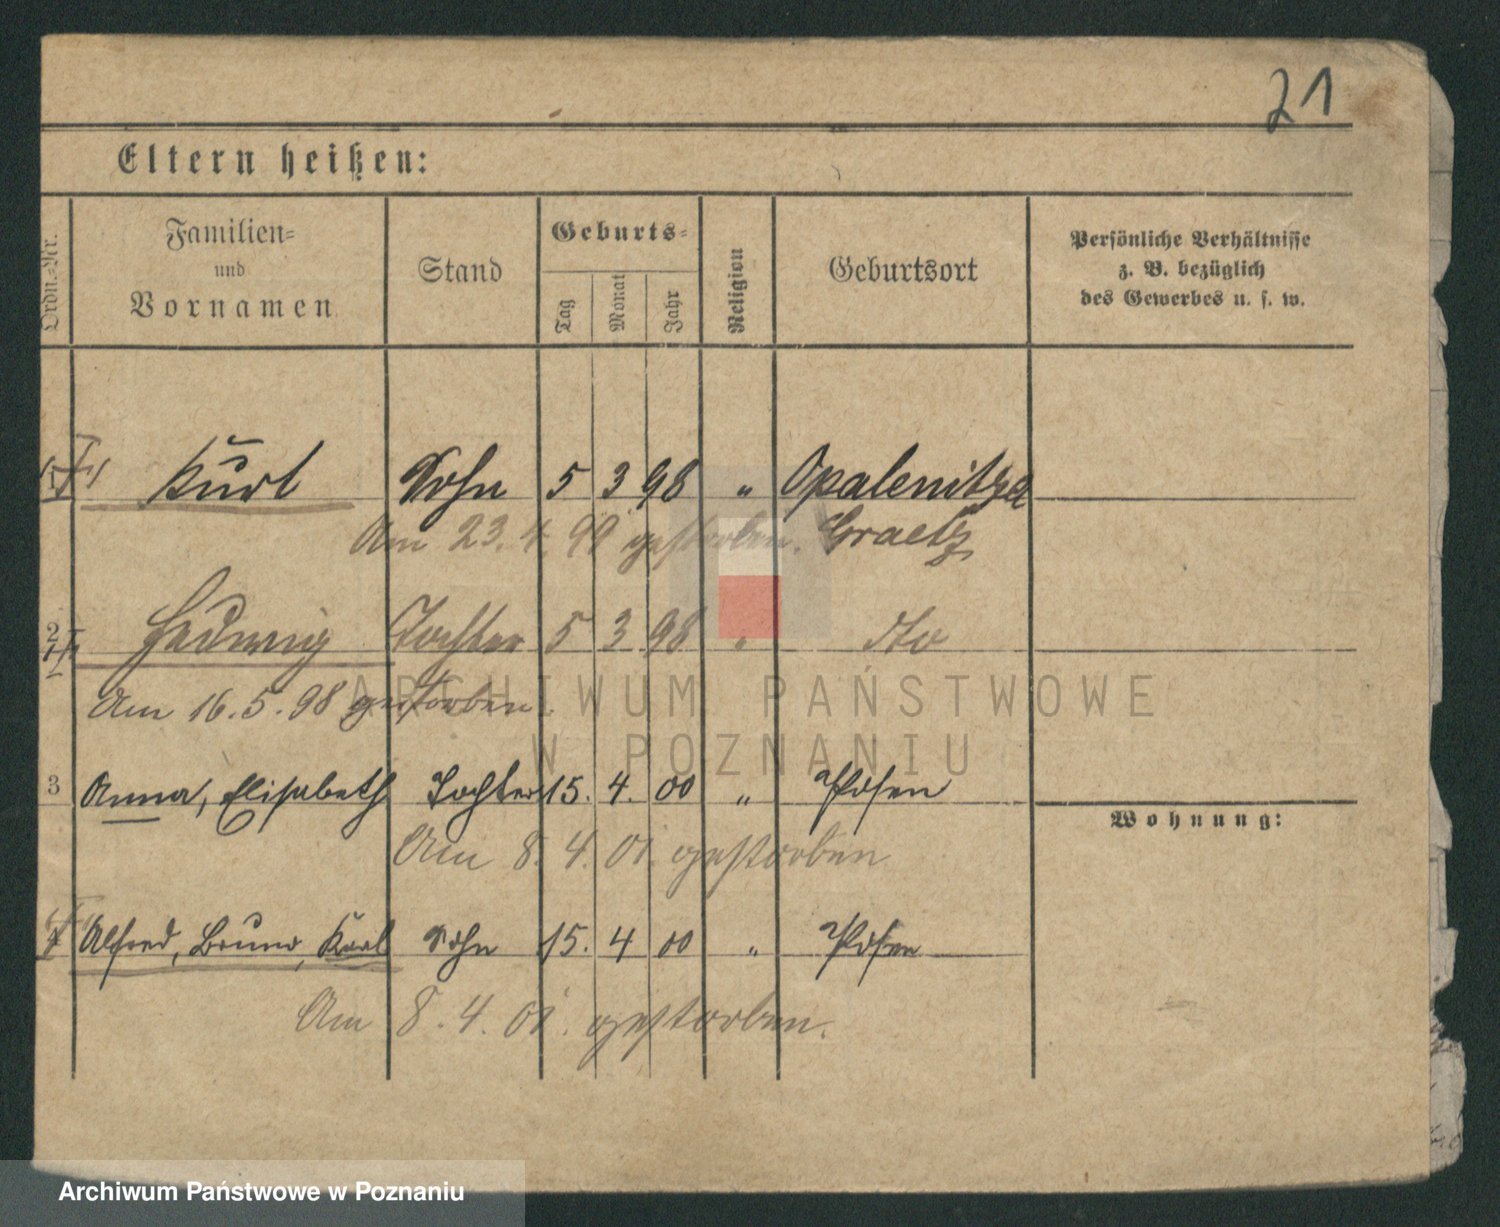 21
Eltern heißen:
Ordn.-Nr.
Familien-
und
Vornamen
Stand
Geburts-
Tag
Monat
Jahr
Religion
Geburtsort
Persönliche Verhältnisse
z. B. bezüglich
des Gewerbes u. s. w.
Kurt Sohn 5 3 98 " Opalenitza
Am 23. 4. 99 gestorben. Graetz
2 Hedwig Tochter 5 3 98 " dto
Am 16. 5. 98 gestorben.
3 Anna, Elisabeth Tochter 15. 4. 00 " Posen
Wohnung:
Am 8. 4. 01. gestorben
4 Alfred, Bruno, Karl Sohn 15. 4 00 " Posen
Am 8. 4. 01. gestorben.
ARCHIWUM PAŃSTWOWE
W POZNANIU
Archiwum Państwowe w Poznaniu